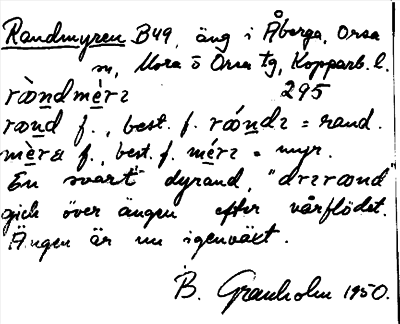 Randmyren B49, äng i Åberga, Orsa
sn, Mora o Orsa tg, Kopparb. l.
ràndmèrɛ 295
rand f., best. f. rándɛ = rand.
mèra f., best. f. mérɛ = myr.
En svart dyrand, "drɛrand"
gick över ängen efter vårflödet.
Ängen är nu igenväxt.
B. Granholm 1950.